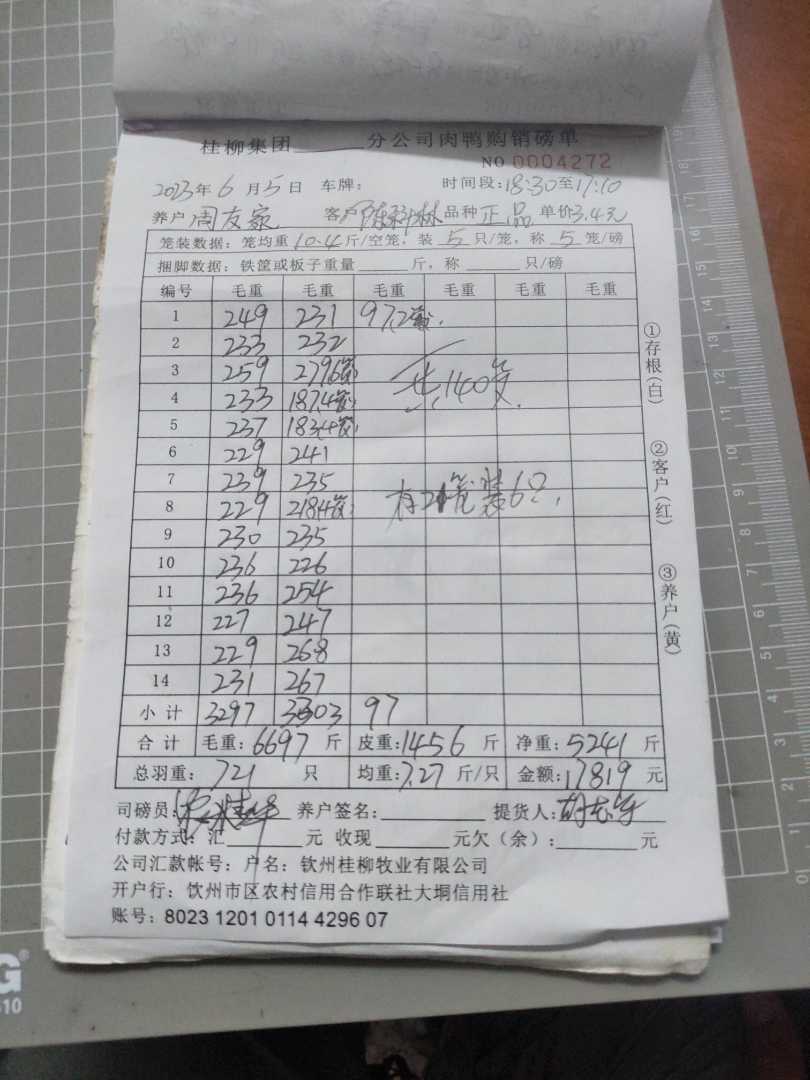 桂柳集团 分公司肉鸭购销磅单
NO 0004272
2023年6月5日 车牌: 时间段:18:30至17:10
养户 周友家 客户 陈科林 品种 正品 单价 3.4元
笼装数据:笼均重 10.4 斤/空笼,装 5 只/笼,称 5 笼/磅
捆脚数据:铁筐或板子重量 斤,称 只/磅
编号 毛重 毛重 毛重 毛重 毛重 毛重
1 249 231 97,2
2 233 232
3 259 279,6
4 233 187,4
5 237 183,4
6 229 241
7 239 235
8 229 218,4
9 230 235
10 236 226
11 236 254
12 227 247
13 229 268
14 231 267
共140笼
有21笼装6只
小计 3297 3303 97
合计 毛重:6697 斤 皮重:1456 斤 净重:5241 斤
总羽重:721 只 均重:7.27 斤/只 金额:17819 元
司磅员: 养户签名: 提货人:
付款方式:汇 元 收现 元欠(余): 元
公司汇款帐号:户名:钦州桂柳牧业有限公司
开户行:饮州市区农村信用合作联社大垌信用社
账号:8023 1201 0114 4296 07
①存根(白)
②客户(红)
③养户(黄)
G
510